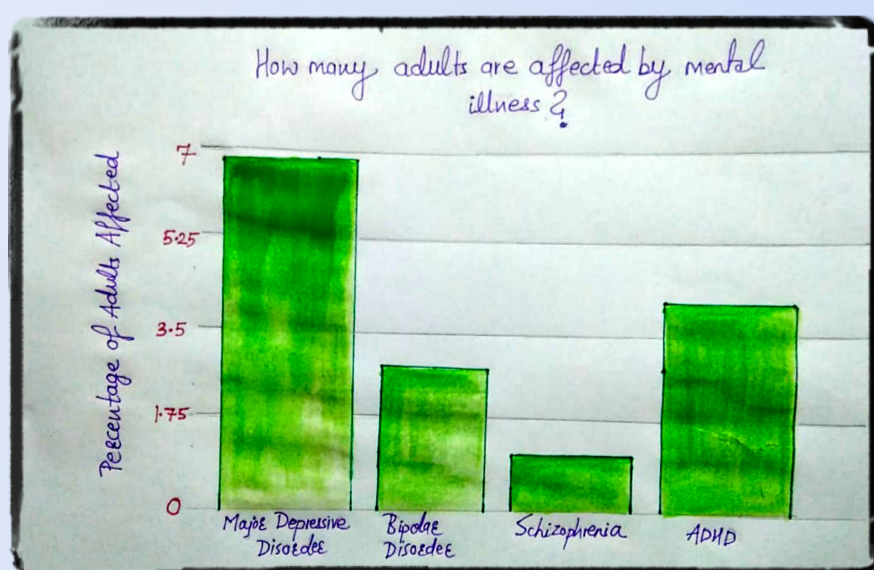 How many adults are affected by mental
illness?
Percentage of Adults Affected
7
5.25
3.5
1.75
0
Major Depressive
Disorder
Bipolar
Disorder
Schizophrenia
ADHD